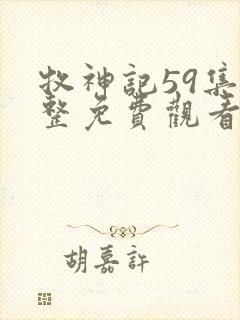 牧神記59集
整免費觀看
胡嘉許